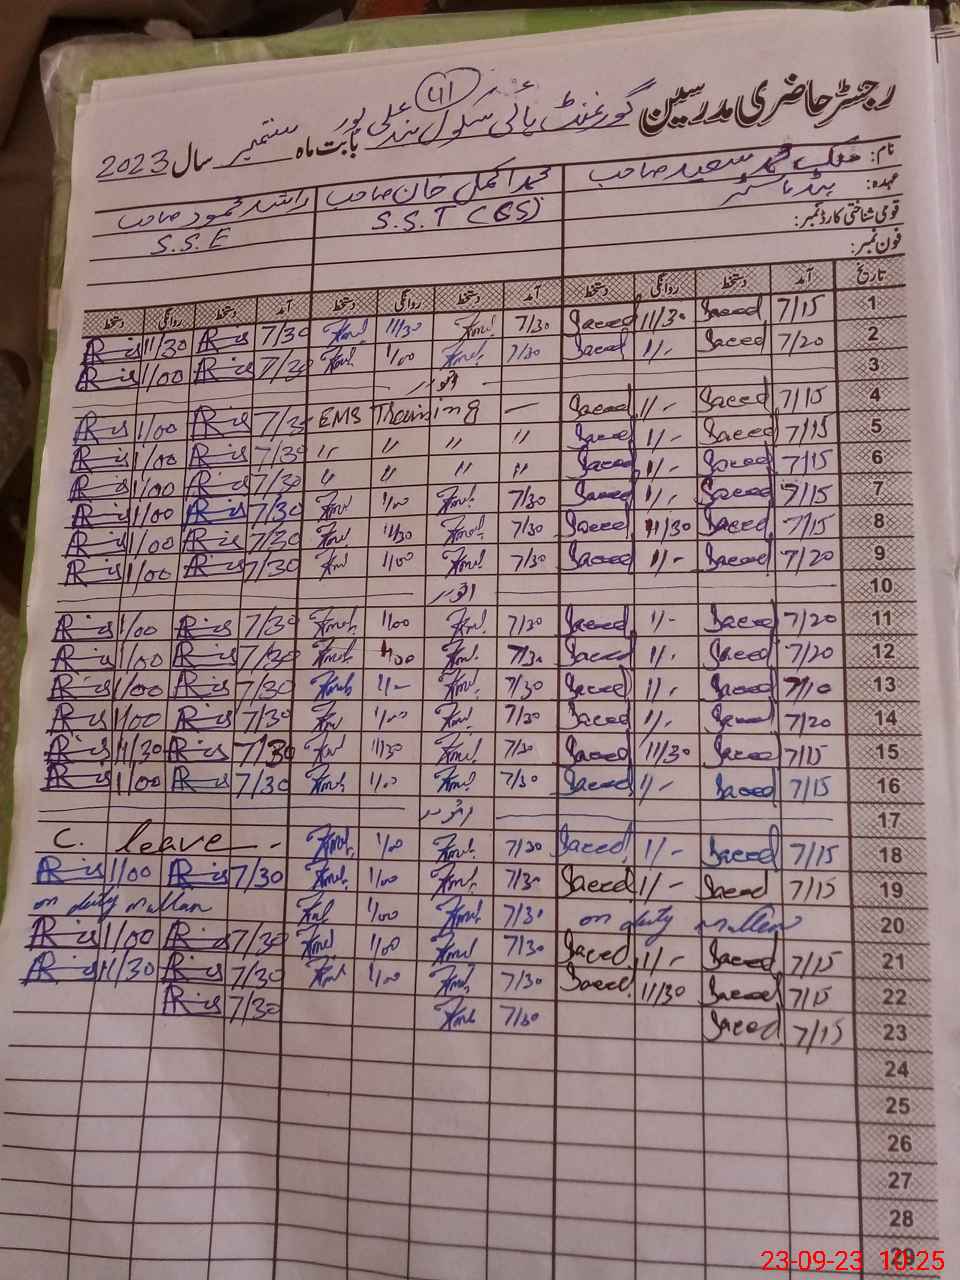 41
رجسٹر حاضری مدرسین گورنمنٹ ہائی سکول بند علی پور
بابت ماہ ستمبر سال 2023
نام: ملک محمد سعید صاحب محمد اکمل خان صاحب راشد محمود صاحب
عہدہ: ہیڈ ماسٹر S.S.T (BS) S.S.E
قومی شناختی کارڈ نمبر:
فون نمبر:
تاریخ آمد دستخط روانگی دستخط آمد دستخط روانگی دستخط آمد دستخط روانگی دستخط
1 7/15 Saeed 11/30 Saeed 7/30 11/30 7/30 11/30
2 7/20 Saeed 1/- Saeed 7/30 1/00 7/30 1/00
3 اتوار
4 7/15 Saeed 1/- Saeed — EMS Training 7/30 1/00
5 7/15 Saeed 1/- Saeed " " " " 7/30 1/00
6 7/15 Saeed 1/- Saeed " " " " 7/30 1/00
7 7/15 Saeed 1/- Saeed 7/30 1/00 7/30 1/00
8 7/15 Saeed 11/30 Saeed 7/30 11/30 7/30 1/00
9 7/20 Saeed 1/- Saeed 7/30 1/00 7/30 1/00
10 اتوار
11 7/20 Saeed 1/- Saeed 7/30 1/00 7/30 1/00
12 7/20 Saeed 1/- Saeed 7/30 1/00 7/30 1/00
13 7/10 Saeed 1/- Saeed 7/30 1/- 7/30 1/00
14 7/20 Saeed 1/- Saeed 7/30 1/00 7/30 1/00
15 7/15 Saeed 11/30 Saeed 7/30 11/30 7/30 11/30
16 7/15 Saeed 1/- Saeed 7/30 1/00 7/30 1/00
17 اتوار
18 7/15 Saeed 1/- Saeed 7/30 1/00 C. leave -
19 7/15 Saeed 1/- Saeed 7/30 1/00 7/30 1/00
20 on duty multan 7/30 1/00 on duty multan
21 7/15 Saeed 1/- Saeed 7/30 1/00 7/30 1/00
22 7/15 Saeed 11/30 Saeed 7/30 1/00 7/30 11/30
23 7/15 Saeed 7/30 7/30
24
25
26
27
28
29
23-09-23 10:25